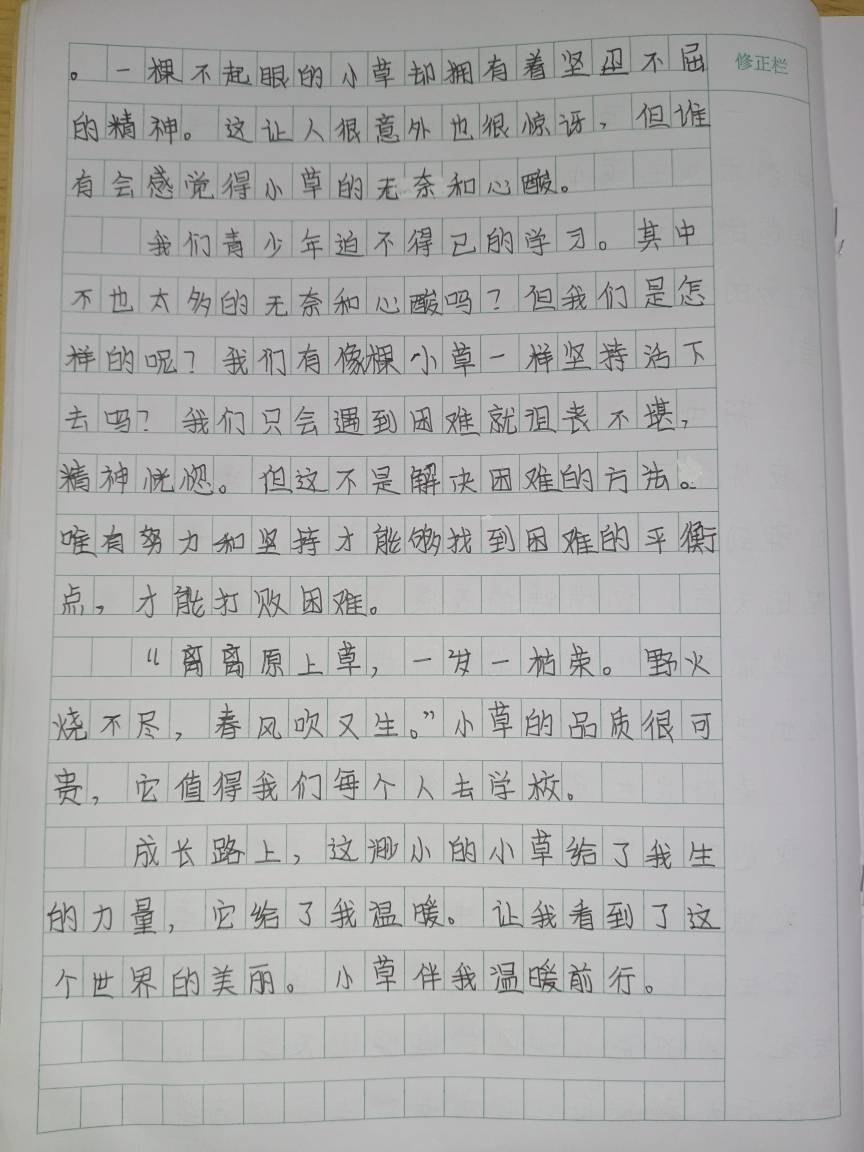 修正栏
。一棵不起眼的小草却拥有着坚忍不屈
的精神。这让人很意外也很惊讶，但谁
有会感觉得小草的无奈和心酸。
我们青少年迫不得已的学习。其中
不也太多的无奈和心酸吗？但我们是怎
样的呢？我们有像棵小草一样坚持活下
去吗？我们只会遇到困难就沮丧不堪，
精神恍惚。但这不是解决困难的方法。
唯有努力和坚持才能够找到困难的平衡
点，才能打败困难。
“离离原上草，一岁一枯荣。野火
烧不尽，春风吹又生。”小草的品质很可
贵，它值得我们每个人去学校。
成长路上，这渺小的小草给了我生
的力量，它给了我温暖。让我看到了这
个世界的美丽。小草伴我温暖前行。